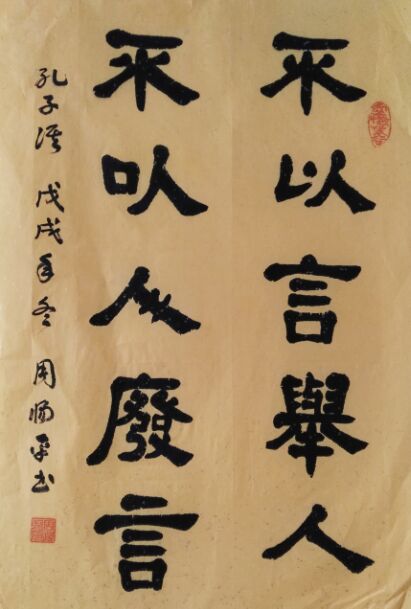 不以言舉人
不以人廢言
孔子语 戊戌年冬 周炀平书